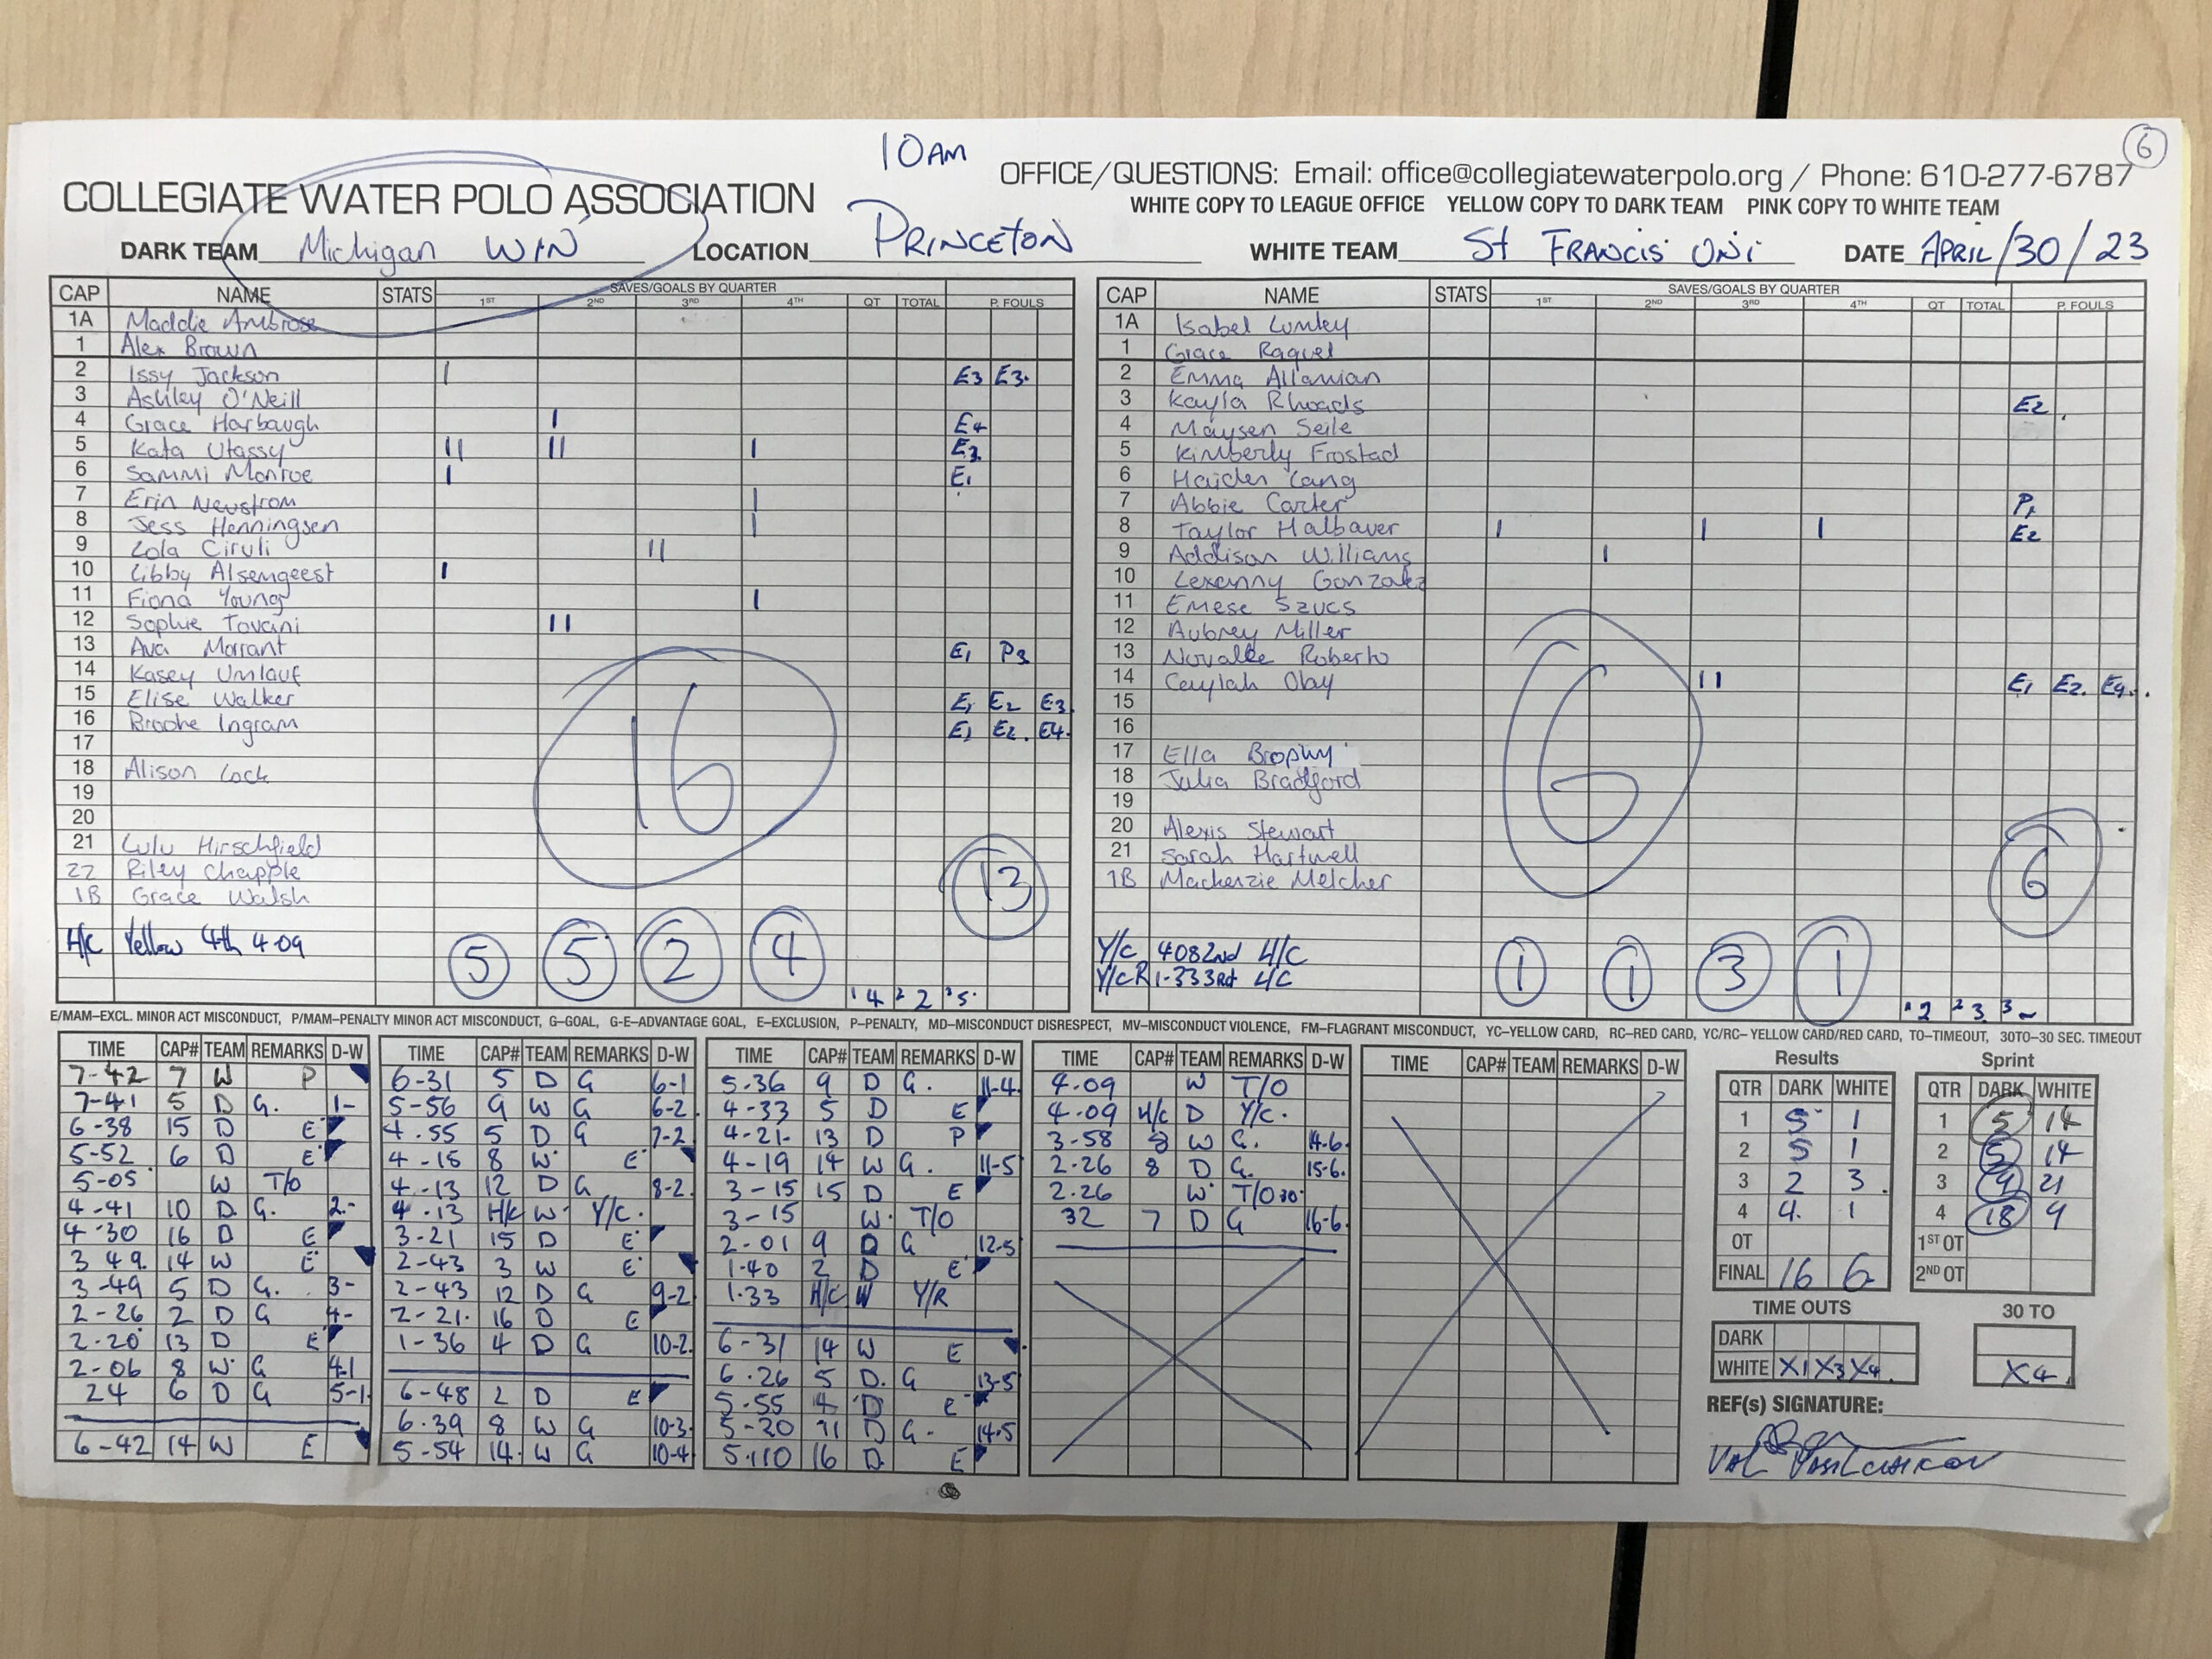 10AM
6
COLLEGIATE WATER POLO ASSOCIATION
OFFICE/QUESTIONS: Email: office@collegiatewaterpolo.org / Phone: 610-277-6787
WHITE COPY TO LEAGUE OFFICE YELLOW COPY TO DARK TEAM PINK COPY TO WHITE TEAM
DARK TEAM Michigan WIN LOCATION PRINCETON WHITE TEAM St FRANCIS UNi DATE APRIL/30/23
CAP NAME STATS SAVES/GOALS BY QUARTER
1ST 2ND 3RD 4TH OT TOTAL P. FOULS
1A Maddie Ambrose
1 Alex Brown
2 Issy Jackson I E3 E3.
3 Ashley O'Neill
4 Grace Harbaugh I E4
5 Kata Utassy II II I E3
6 Sammi Monroe I E1
7 Erin Neustrom I
8 Jess Henningsen I
9 Lola Ciruli II
10 Libby Alsemgeest I
11 Fiona Young I
12 Sophie Tovani II
13 Ava Morrant E1 P3
14 Kasey Umlauf
15 Elise Walker E1 E2 E3
16 Brophe Ingram E1 E2. E4.
17
18 Alison Lock
19
20
21 Lulu Hirschfield
22 Riley Chapple
1B Grace Walsh
16
13
H/C Yellow 4th 4-09
5 5 2 4
1 4 2 2 3 5.
CAP NAME STATS SAVES/GOALS BY QUARTER
1ST 2ND 3RD 4TH OT TOTAL P. FOULS
1A Isabel Lumley
1 Grace Raquel
2 Emma Allanian
3 Kayla Rhoads E2
4 Maysen Seile
5 Kimberly Frostad
6 Haiden Lang
7 Abbie Carter P1
8 Taylor Halbauer I I I E2
9 Addison Williams I
10 Lexanny Gonzalez
11 Emese Szucs
12 Aubrey Miller
13 Novalee Roberto
14 Ceylah Obay II E1 E2. E4.
15
16
17 Ella Brophy
18 Julia Bradford
19
20 Alexis Stewart
21 Sarah Hartwell
1B Mackenzie Melcher
6
6
Y/C 4082nd H/C
Y/CR 1-333rd H/C
1 1 3 1
1 2 2 3 3 -
E/MAM–EXCL. MINOR ACT MISCONDUCT, P/MAM–PENALTY MINOR ACT MISCONDUCT, G–GOAL, G-E–ADVANTAGE GOAL, E–EXCLUSION, P–PENALTY, MD–MISCONDUCT DISRESPECT, MV–MISCONDUCT VIOLENCE, FM–FLAGRANT MISCONDUCT, YC–YELLOW CARD, RC–RED CARD, YC/RC–YELLOW CARD/RED CARD, TO–TIMEOUT, 30TO–30 SEC. TIMEOUT
TIME CAP# TEAM REMARKS D-W
7-42 7 W P
7-41 5 D G. 1-
6-38 15 D E
5-52 6 D E
5-05 W T/O
4-41 10 D G. 2-
4-30 16 D E
3 49. 14 W E
3-49 5 D G. 3-
2-26 2 D G 4-
2-20 13 D E
2-06 8 W G 4-1
24 6 D G 5-1
6-42 14 W E
TIME CAP# TEAM REMARKS D-W
6-31 5 D G 6-1
5-56 9 W G 6-2
4.55 5 D G 7-2
4-18 8 W E
4-13 12 D G 8-2
4-13 H/C W Y/C.
3-21 15 D E
2-43 3 W E
2-43 12 D G 9-2
2-21. 16 D E
1-36 4 D G 10-2
6-48 2 D E
6-39 8 W G 10-3
5-54 14 W G 10-4
TIME CAP# TEAM REMARKS D-W
5-36 9 D G. 11-4
4-33 5 D E
4-21- 13 D P
4-19 14 W G. 11-5
3-15 15 D E
3-15 W T/O
2-01 9 D G 12-5
1-40 2 D E
1-33 H/C W Y/R
6-31 14 W E
6.26 5 D. G 13-5
5-55 4 D E
5-20 11 D G- 14-5
5-110 16 D E
TIME CAP# TEAM REMARKS D-W
4-09 W T/O
4-09 H/C D Y/C.
3-58 8 W G. 14-6
2-26 8 D G. 15-6
2.26 W T/O 30
32 7 D G 16-6
TIME CAP# TEAM REMARKS D-W
Results
QTR DARK WHITE
1 5 1
2 5 1
3 2 3
4 4 1
OT
FINAL 16 6
Sprint
QTR DARK WHITE
1 5 14
2 5 14
3 9 21
4 18 9
1ST OT
2ND OT
TIME OUTS
DARK
WHITE X1 X3 X4
30 TO
X4
REF(s) SIGNATURE: